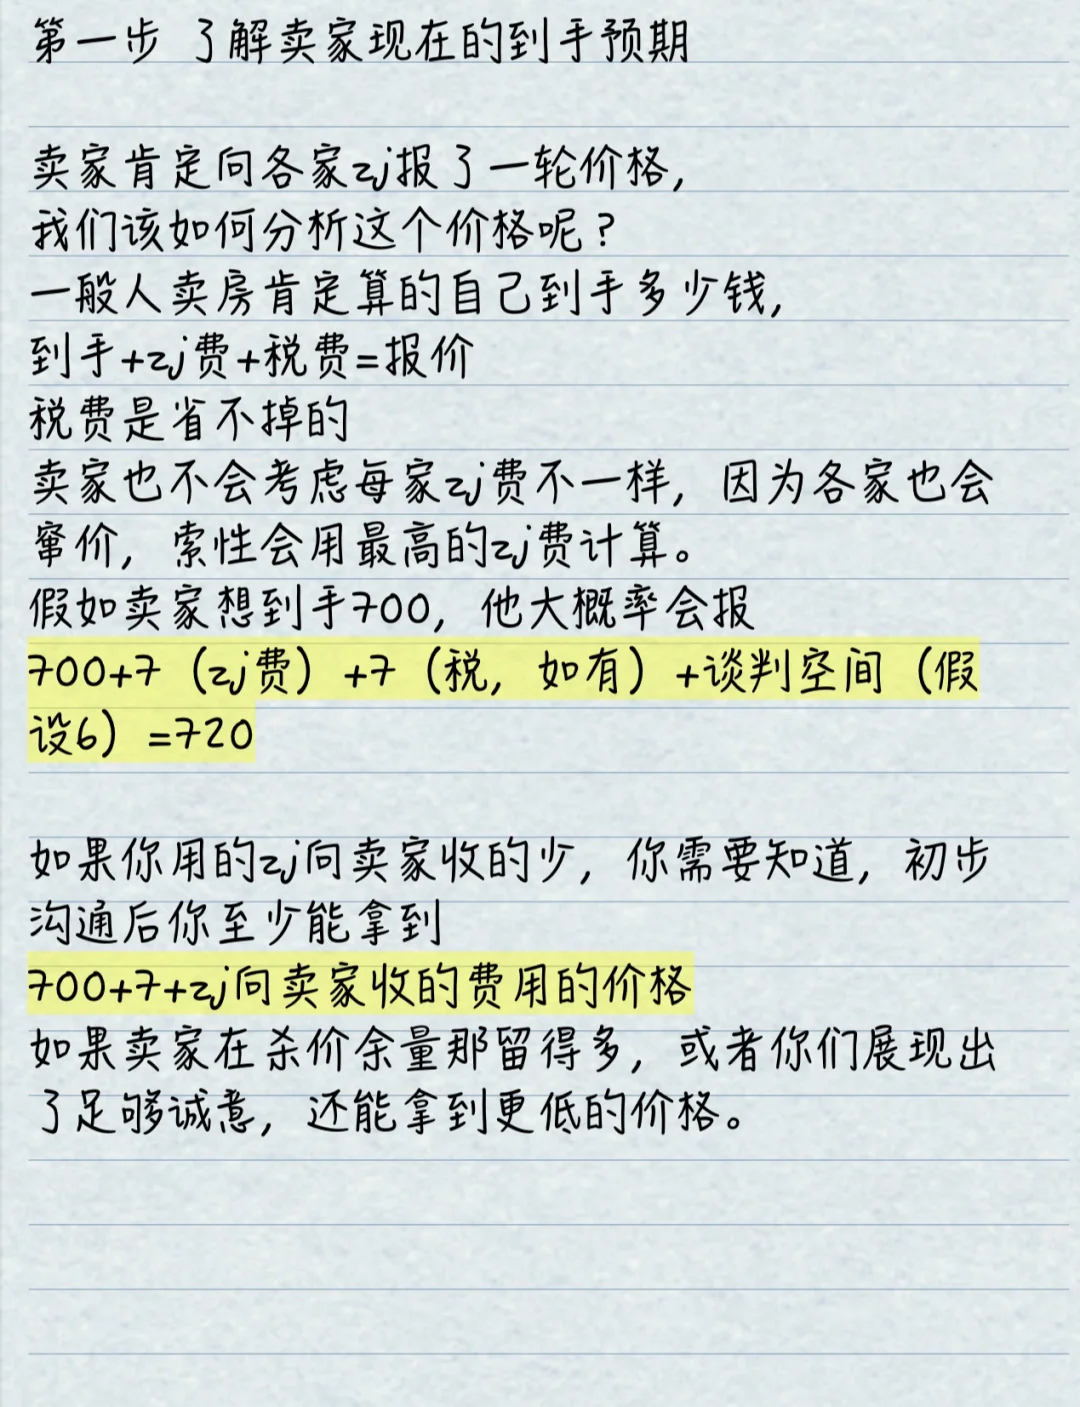 第一步 了解卖家现在的到手预期
卖家肯定向各家zj报了一轮价格，
我们该如何分析这个价格呢？
一般人卖房肯定算的自己到手多少钱，
到手+zj费+税费=报价
税费是省不掉的
卖家也不会考虑每家zj费不一样，因为各家也会
窜价，索性会用最高的zj费计算。
假如卖家想到手700，他大概率会报
700+7（zj费）+7（税，如有）+谈判空间（假
设6）=720
如果你用的zj向卖家收的少，你需要知道，初步
沟通后你至少能拿到
700+7+zj向卖家收的费用的价格
如果卖家在杀价余量那留得多，或者你们展现出
了足够诚意，还能拿到更低的价格。